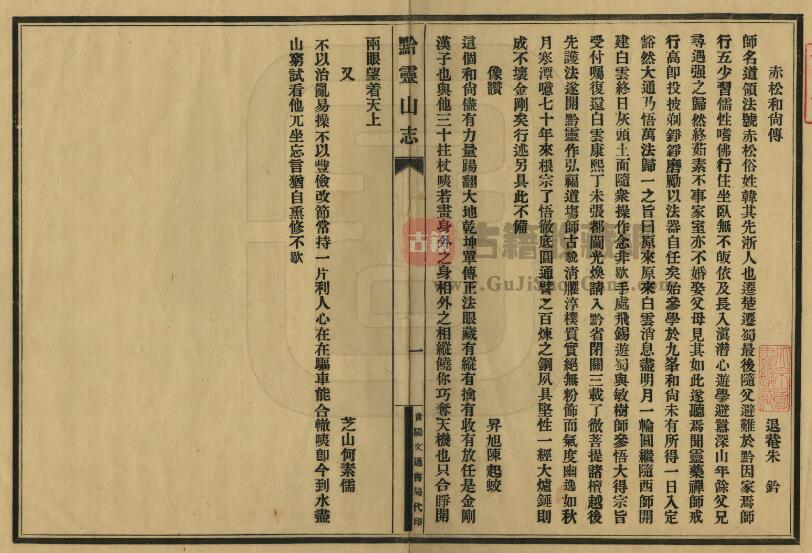 赤松和尚傳
退菴朱鈐
師名道領法號赤松俗姓韓其先浙人也遷楚遷蜀最後隨父避難於黔因家焉師
行五少習儒性嗜佛行住坐臥無不皈依及長入滇潛心遊學避囂深山年餘父兄
尋遇强之歸然終茹素不事家室亦不婚娶父母見其如此遂聽焉聞靈藥禪師戒
行高卽投披剃錚錚磨勵以法器自任矣始參學於九峯和尚未有所得一日入定
豁然大通乃悟萬法歸一之旨曰原來原來白雲消息盡明月一輪圓繼隨西師開
建白雲終日灰頭土面隨衆操作念非歇手處飛錫遊蜀與敏樹師參悟大得宗旨
受付囑復還白雲康熙丁未張都閫光煥請入黔省閉關三載了徹菩提諸檀越後
先護法遂開黔靈作弘福道塲師古貌清臞淳樸質實絕無粉飾而氣度幽逸如秋
月寒潭噫七十年來根宗了悟徹底圓通譬之百煉之鋼夙具堅性一經大爐錘卽
成不壞金剛矣行述另具此不備
像讚
昇旭陳起蛟
這個和尚儘有力量踢翻大地乾坤單傳正法眼藏有縱有擒有收有放任是金剛
漢子也與他三十拄杖咦若畫身外之身相外之相縱饒你巧奪天機也只合睜開
黔靈山志
一
貴陽文通書局代印
兩眼望着天上
又
芝山何素儒
不以治亂易操不以豐儉改節常持一片利人心在在驅車能合轍咦卽今到水盡
山窮試看他兀坐忘言猶自熏修不歇
古籍
www.GuJiShuCang.com